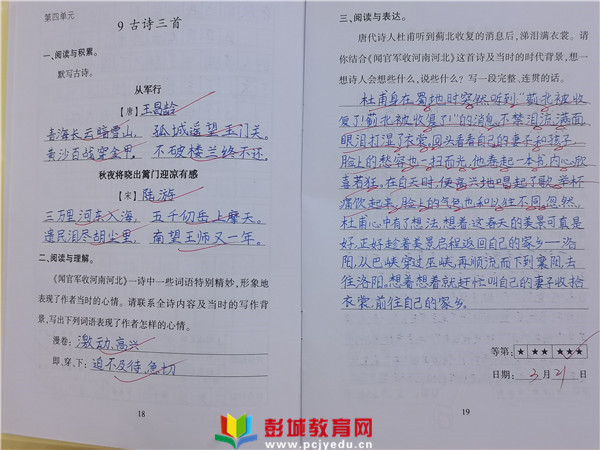 第四单元
9 古诗三首
一、阅读与积累。
默写古诗。
从军行
【唐】王昌龄
青海长云暗雪山，孤城遥望玉门关。
黄沙百战穿金甲，不破楼兰终不还。
秋夜将晓出篱门迎凉有感
【宋】陆游
三万里河东入海，五千仞岳上摩天。
遗民泪尽胡尘里，南望王师又一年。
二、阅读与理解。
《闻官军收河南河北》一诗中一些词语特别精妙，形象地
表现了作者当时的心情。请联系全诗内容及当时的写作背
景，写出下列词语表现了作者怎样的心情。
漫卷：激动，高兴
即，穿，下：迫不及待，急切
18
三、阅读与表达。
唐代诗人杜甫听到蓟北收复的消息后，涕泪满衣裳。请
你结合《闻官军收河南河北》这首诗及当时的时代背景，想一
想诗人会想些什么，说些什么？写一段完整、连贯的话。
杜甫身在蜀地，时突然听到“蓟北被收
复了！蓟北被收复了！”的消息，不禁泪流满面，
眼泪打湿了衣裳，回头看看自己的妻子和孩子，
脸上的愁容也一扫而光，他卷起一本书，内心欣
喜若狂，在白天时，便高兴地唱起了歌，举杯
痛饮起来，脸上的气色也和以往不同，忽然，
杜甫心中有了想法，想着，这春天的美景可真是
好，正好趁着美景启程返回自己的家乡——洛
阳，从巴峡穿过巫峡，再顺流而下到襄阳，去
往洛阳。想着想着就赶忙叫自己的妻子收拾
衣裳，前往自己的家乡。
等第：★ ★ ★★★
日期：3月21日
19
彭城教育网
www.pcjyedu.cn